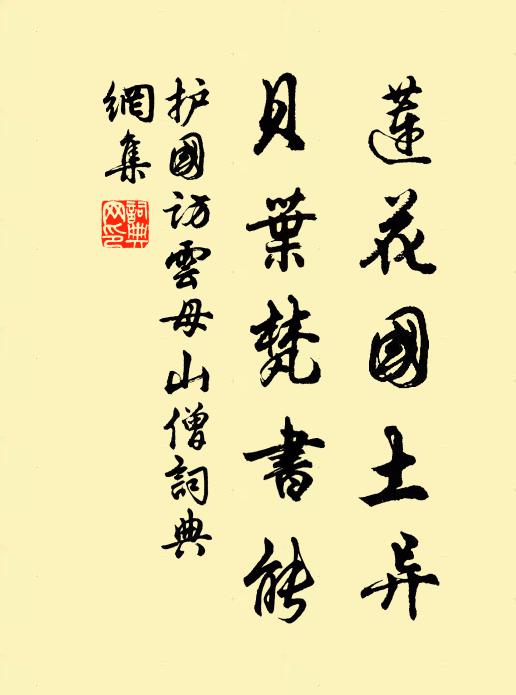 蓮花國土异
貝葉梵書能
护國訪雲母山僧詞典
網集
詞典網印